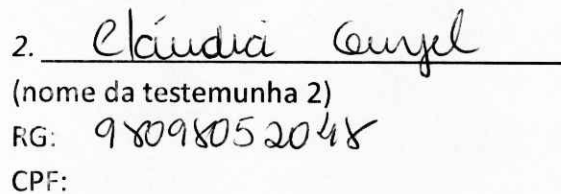 2. Cláudia Gurgel
(nome da testemunha 2)
RG: 98098052048
CPF: